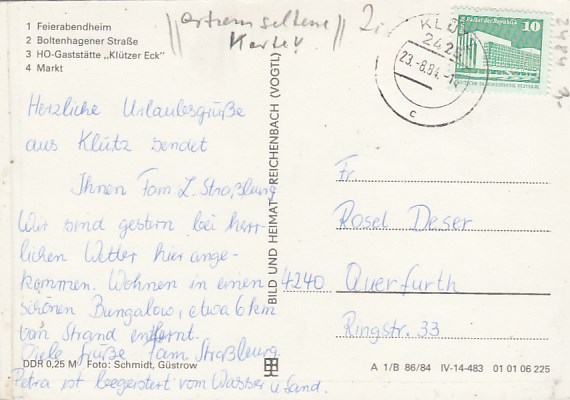 1 Feierabendheim
2 Boltenhagener Straße
3 HO-Gaststätte „Klützer Eck"
4 Markt
extrem seltene
Karte!
KLÜTZ
2423
23.-8.84.-1
c
Palast der Republik 10
Herzliche Urlaubsgrüße
aus Klütz sendet
Ihnen Fam. L. Straßburg
Wir sind gestern bei herr-
lichen Wetter hier ange-
kommen. Wohnen in einen
schönen Bungalow, etwa 6 km
vom Strand entfernt.
Viele Grüße Fam Straßburg
Petra ist begeistert vom Wasser u Sand.
BILD UND HEIMAT REICHENBACH (VOGTL)
Fr.
Rosel Deser
4240 Querfurth
Ringstr. 33
DDR 0,25 M Foto: Schmidt, Güstrow
A 1/B 86/84 IV-14-483 01 01 06 225